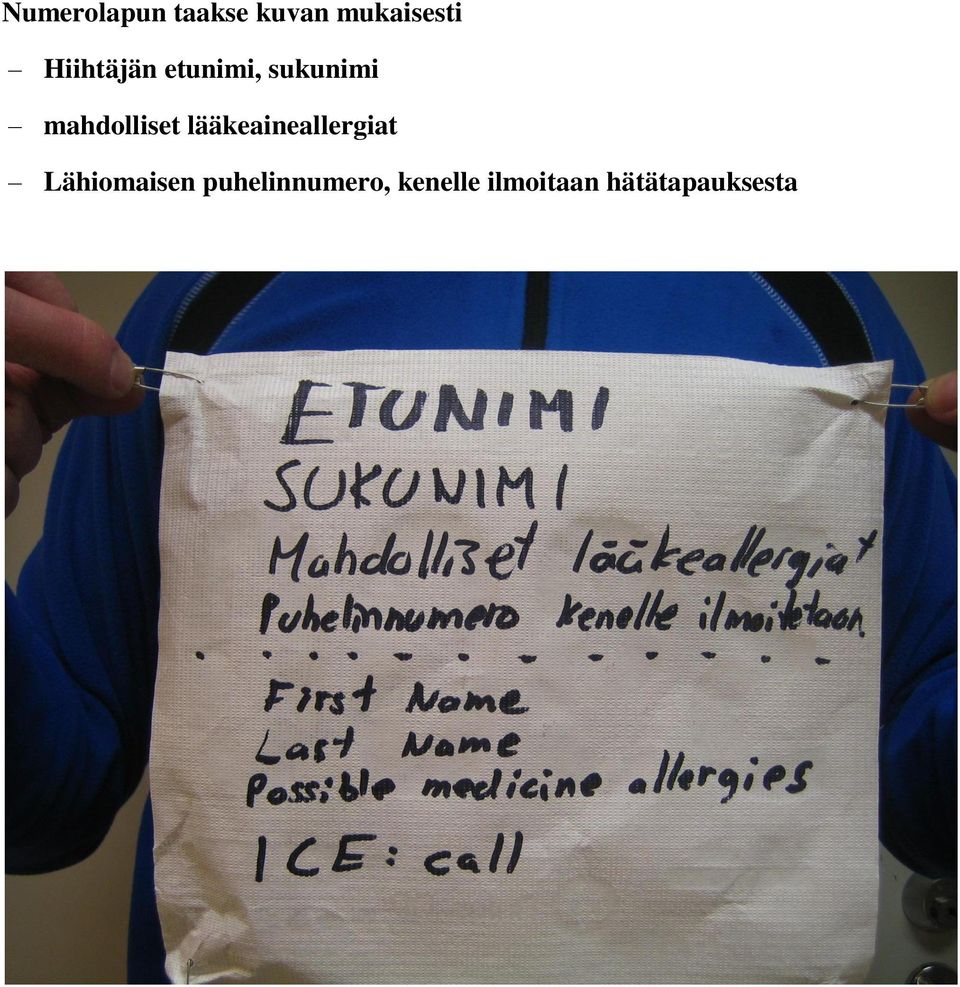 Numerolapun taakse kuvan mukaisesti
– Hiihtäjän etunimi, sukunimi
– mahdolliset lääkeaineallergiat
– Lähiomaisen puhelinnumero, kenelle ilmoitaan hätätapauksesta
ETUNIMI
SUKUNIMI
Mahdolliset lääkeallergiat
Puhelinnumero kenelle ilmoitetaan
First Name
Last Name
Possible medicine allergies
ICE: call